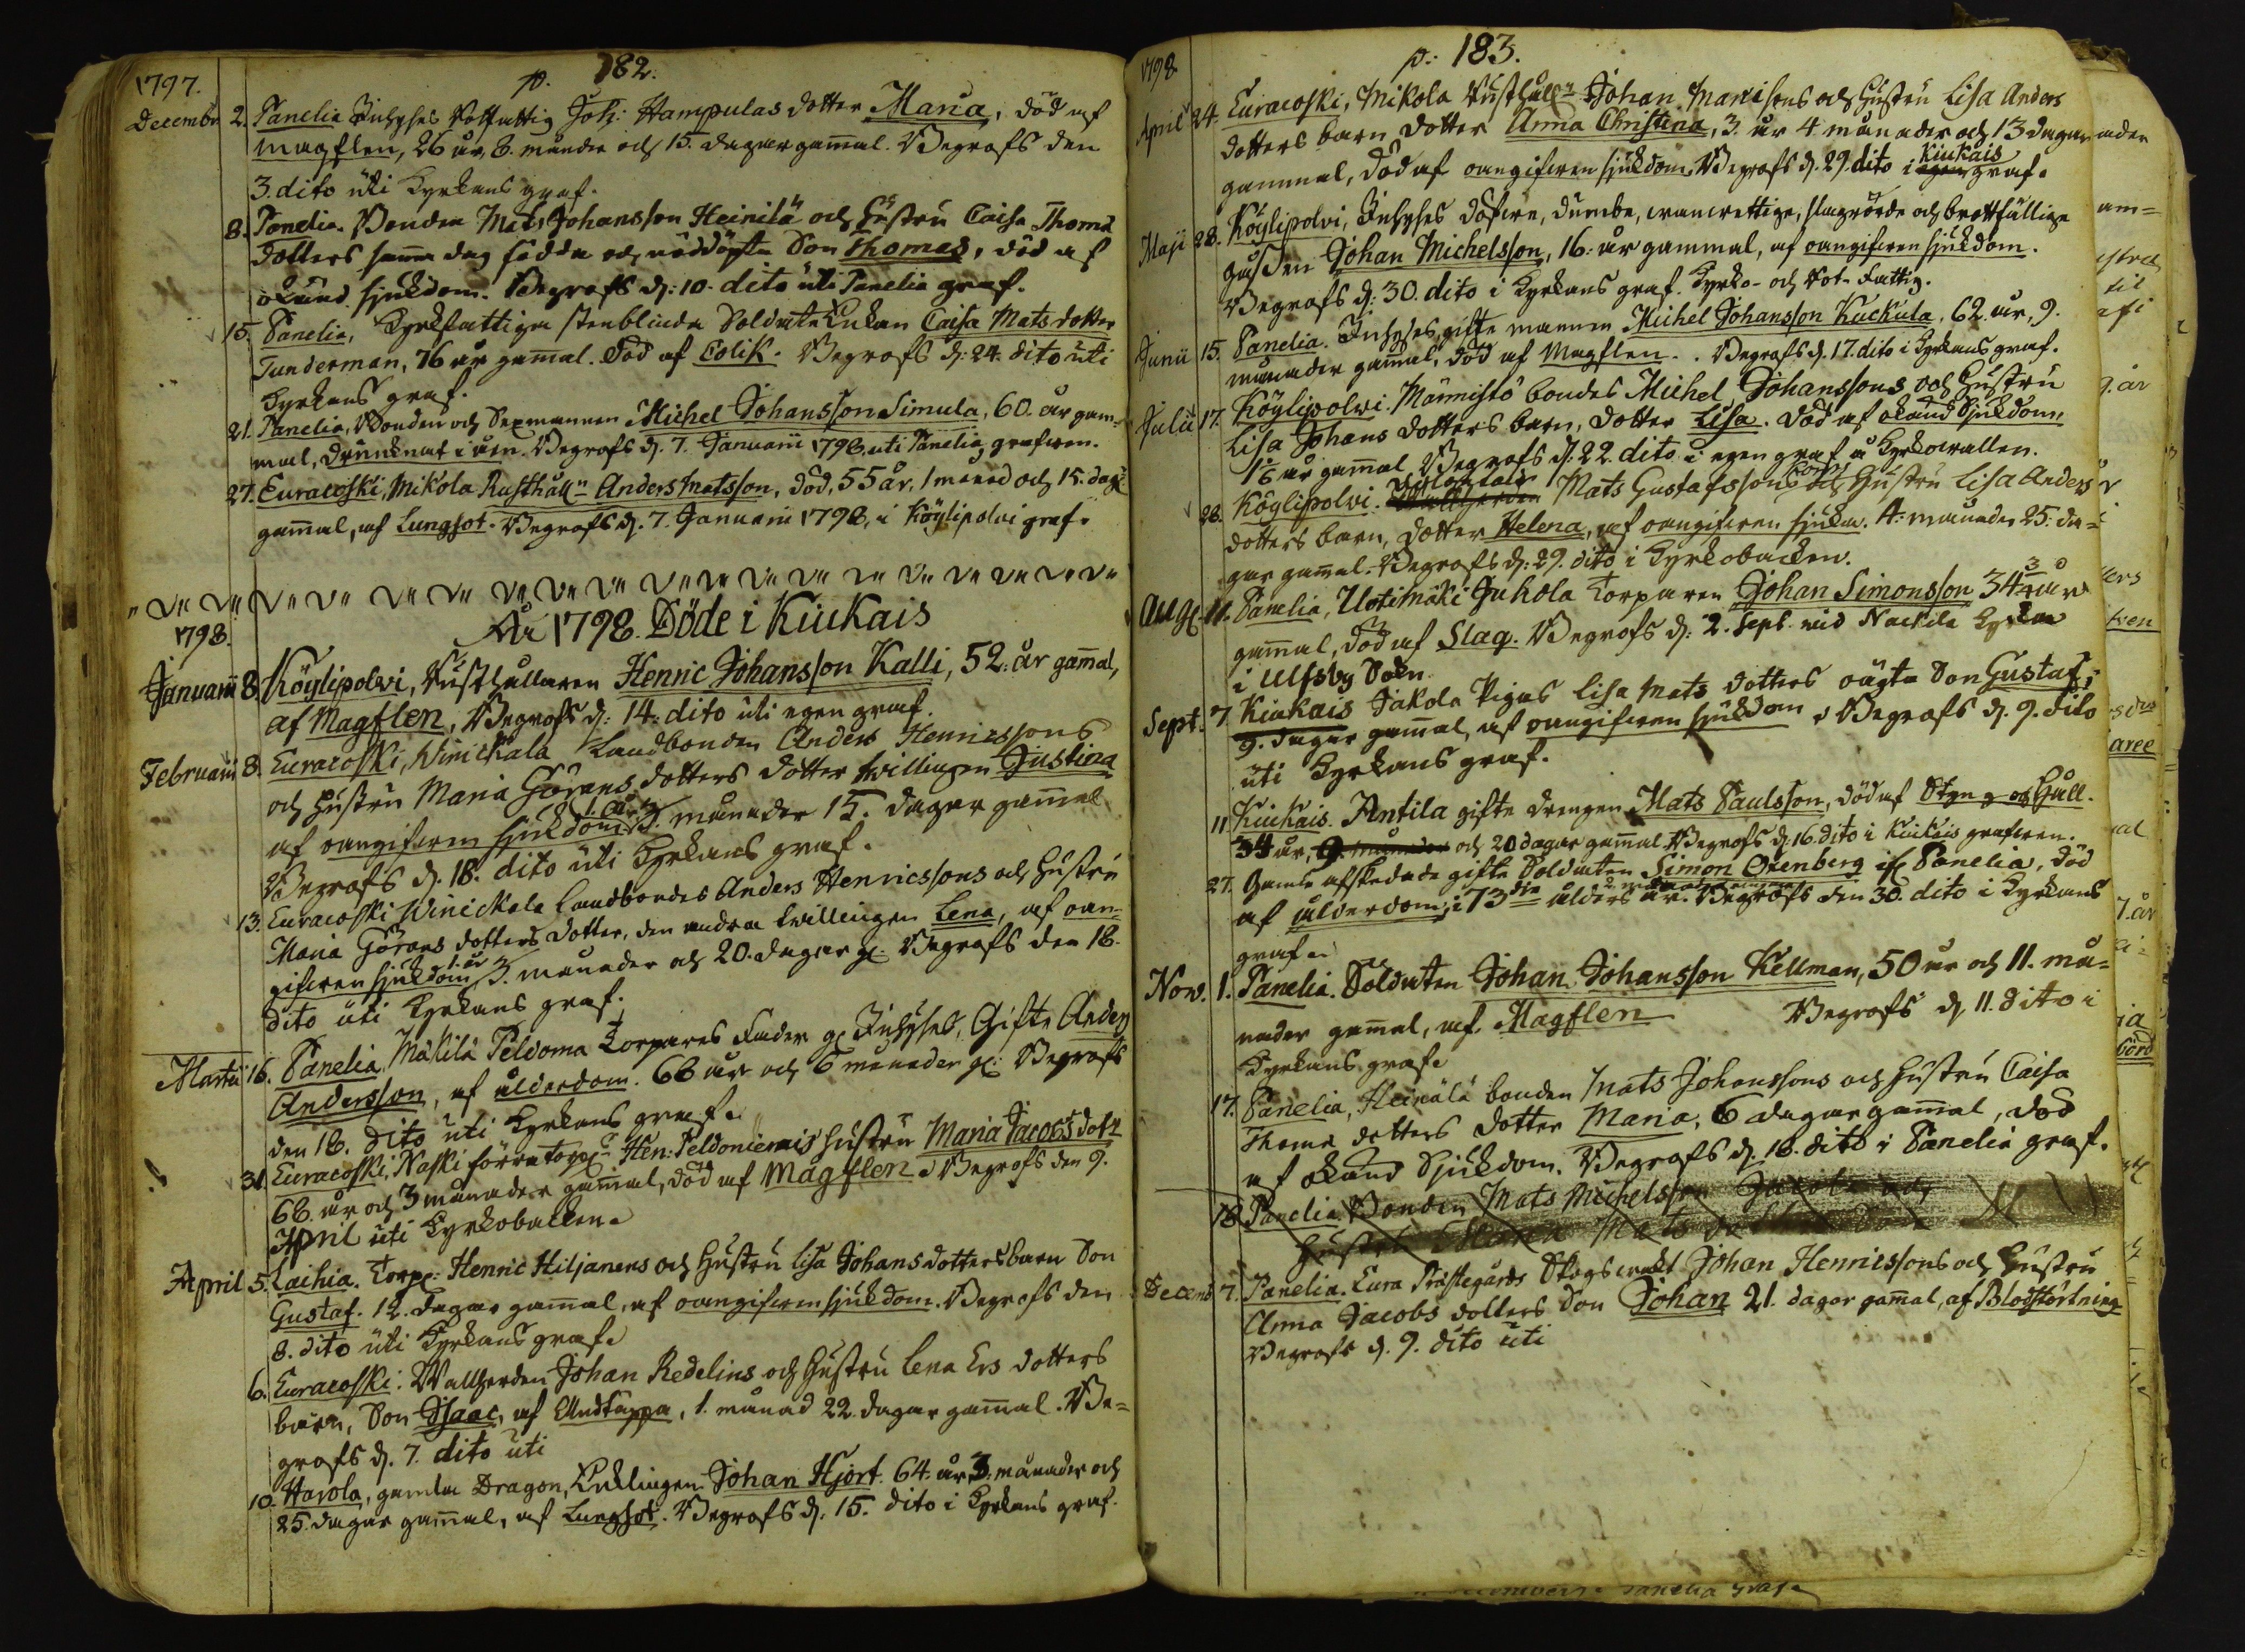 1797.
p. 182.
Decembr 2. Panelia Inhyses Rotfattig Joh: Hampulas dotter Maria, död af
magflen, 26 år, 8. månader och 15. dagar gam̄al. Begrofs den
3. dito uti Kyrkans graf.
8. Panelia. Bonden Mats Johansson Heinilä och Hustru Caisa Thomæ
dotters samma dag födda och nöddöpta Son Thomas, död af
okänd sjukdom. Begrofs d: 10. dito uti Panelia graf.
15. Panelia, Kyrkfattiga stenblinda Soldats Enkan Caisa Mats dotter
Tunderman, 76 år gam̄al. Död af Colik. Begrofs d: 24. dito uti
Kyrkans graf.
21. Panelia, Bonden och Sexmannen Michel Johansson Simula, 60. år gam-
mal, drunknat i åen. Begrofs d. 7. Januarii 1798. uti Panelia grafwen.
27. Euracoski, Mikola Rusthåll:n Anders Matsson, död, 55 år, 1 månad och 15. dagar
gam̄al, af Lungsot. Begrofs d. 7. Januarii 1798, i Köylipolvi graf.
År 1798. Döde i Kiukais
1798.
Januarii 8. Köylipolvi, Rusthållaren Henric Johansson Kalli, 52. år gam̄al,
af Magflen, Begrofs d: 14. dito uti egen graf.
Februarii 8. Euracoski, Winickala Landbonden Anders Henricssons
och Hustru Maria Görans dotters dotter twillingen Justina
af oangifwen sjukdom 1. år 3. månader 15. dagar gam̄al
Begrofs d. 18. dito uti Kyrkans graf.
13. Euracoski Winickala Landbondes Anders Henricssons och Hustru
Maria Görans dotters dotter, den andra twillingen Lena, af oan-
gifwen sjukdom 1. år 3. månader och 20. dagar g: Begrofs den 18.
dito uti Kyrkans graf.
Martii 16. Panelia, Mäkilä Peldoma Torpares Fader g: Inhyses, Gifte Anders
Andersson, af ålderdom. 66 år och 6 månader g: Begrofs
den 18. dito uti Kyrkans graf.
31. Euracoski, Naski förra torp:s Hen: Peldoniemis hustru Maria Jacobs dotr
66. år och 3 månader gam̄al, död af Magflen. Begrofs den 9.
April uti Kyrkobacken.
April 5. Laihia. Torp: Henric Hiljanens och Hustru Lisa Johans dotters barn Son
Gustaf. 12. dagar gam̄al, af oangifwen sjukdom. Begrofs den
8. dito uti Kyrkans graf.
6. Euracoski. Wallherden Johan Redelins och Hustru Lena Ers dotters
barn, Son Isaac, af Andtäppa, 1. månad 22. dagar gam̄al. Be-
grofs d. 7. dito uti
10. Harola, gamla Dragon, Enklingen Johan Hjort. 64. år 3. månader och
25. dagar gam̄al, af Lungsot. Begrofs d. 15. dito i Kyrkans graf.
1798
p. 183.
April 24. Euracoski, Mikola Rusthåll:n Johan Mattssons och Hustru Lisa Anders
dotters barn dotter Anna Christina, 3. år 4 månader och 13 dagar
gammal, död af oangifwen sjukdom. Begrofs d. 29. dito i egen Kiukais graf.
Maji 28. Köylipolvi, Inhyses döfwe, dumbe, wanwettige, slagrörde och brottfällige
gossen Johan Michelsson, 16. år gammal, af oangifwen sjukdom.
Begrofs d: 30. dito i Kyrkans graf. Kyrko- och Rot-Fattig.
Junii 15. Panelia. Inhyses gifte mannen Michel Johansson Kuckula, 62. år, 9.
månader gam̄al, död af Magflen. Begrofs d. 17. dito i Kyrkans graf.
Julii 17. Köylipolvi. Männistö bondes Michel Johanssons och Hustru
Lisa Johans dotters barn, dotter Lisa. död af okänd Sjukdom,
16 år gam̄al. Begrofs d. 22. dito i egen graf å Kyrkowallen.
28. Köylipolvi. Mats Gustafssons och Hustru Lisa Anders
dotters barn, dotter Helena, af oangifwen sjukd. 4. månader 25. da-
gar gam̄al. Begrofs d: 29. dito i Kyrkobacken.
Aug. 11. Panelia, Uotimäki Juhola Torparen Johan Simonsson 34 3/4 år
gam̄al, död af Slag. Begrofs d: 2. Sept. wid Nackila Kyrka
i Ulfsby Sokn.
Sept. 7. Kiukais Jakola Pigas Lisa Mats dotters oägta Son Gustaf,
9. dagar gam̄al, af oangifwen sjukdom. Begrofs d. 9. dito
uti Kyrkans graf.
11. Kiukais. Antila gifte drengen Mats Paulsson, död af Styng och Håll.
34 år, 9. månader och 20 dagar gam̄al. Begrofs d. 16. dito i Kiukais grafwen.
27. Gamle afskedade gifte Soldaten Simon Oxenberg if: Panelia, död
af ålderdom, i 73die ålders år. Begrofs den 30. dito i Kyrkans
graf.
Nov. 1. Panelia. Soldaten Johan Johansson Kellman, 50 år och 11. må-
nader gam̄al, af Magflen Begrofs d 11. dito i
Kyrkans graf.
17. Panelia, Heinälä bonden Mats Johanssons och Hustru Caisa
Thomæ dotters dotter Maria, 6 dagar gam̄al, död
af okänd Sjukdom. Begrofs d. 18. dito i Panelia graf.
18. Panelia Bonden Mats Michelsson
Hustru Maria Mats dotters Son
Decemb 7. Panelia. Eura Prästegårds Skogswakt Johan Henricssons och Hustru
Anna Jacobs dotters Son Johan 21. dagar gam̄al, af Blodstörtning
Begrofs d. 9. dito uti